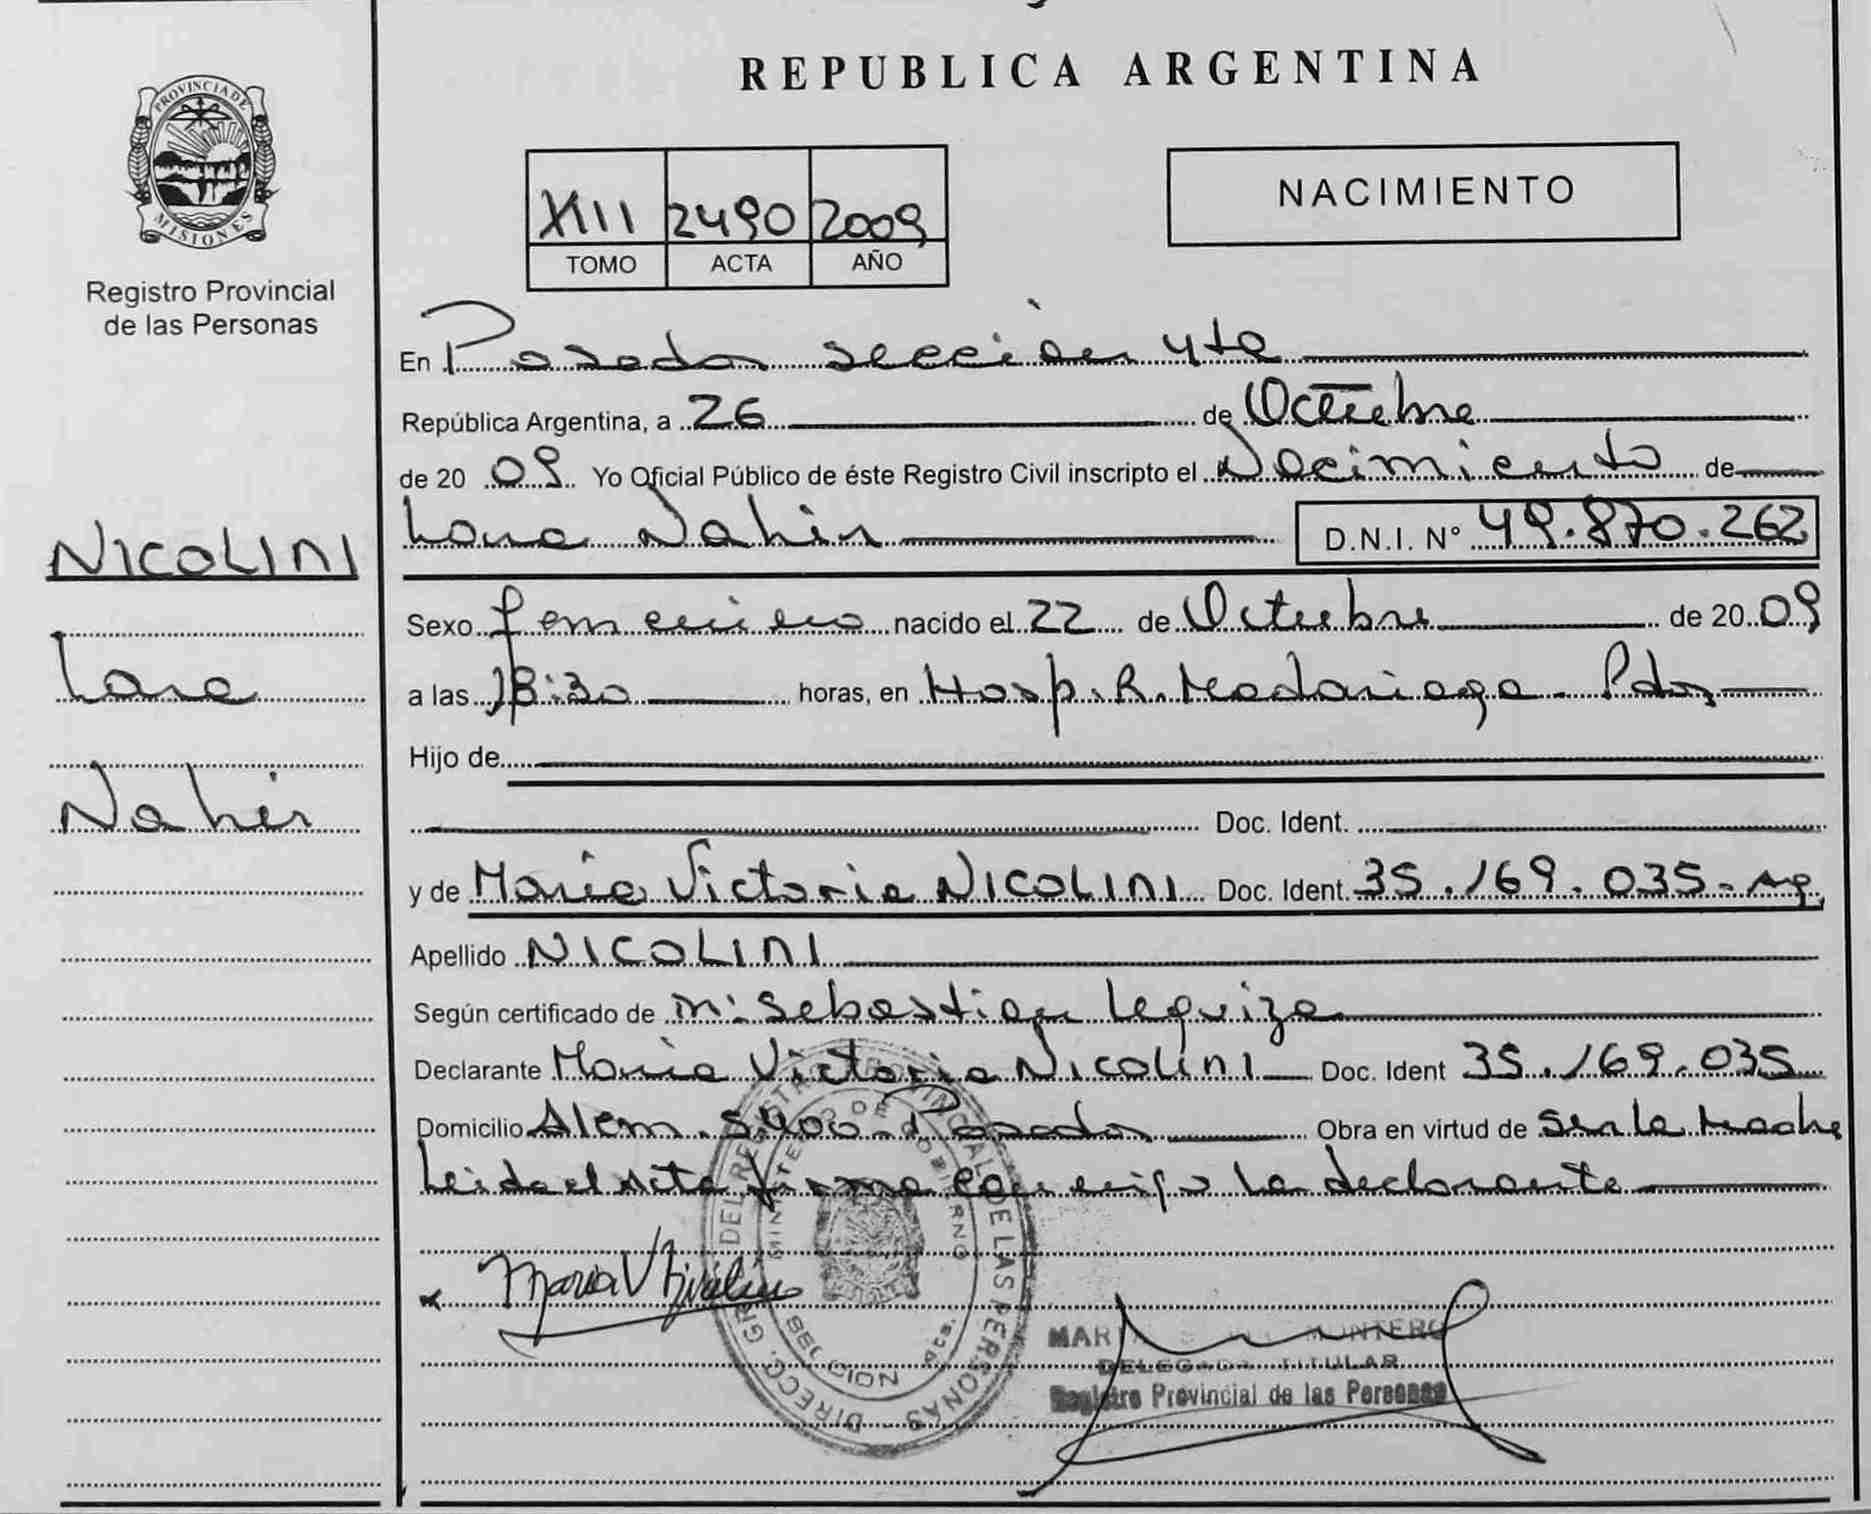 REPUBLICA ARGENTINA
PROVINCIA DE MISIONES
Registro Provincial
de las Personas
NICOLINI
Lara
Nahir
XIII 2490 2009
TOMO ACTA AÑO
NACIMIENTO
En Posadas sección 4ta
República Argentina, a 26 de Octubre
de 2009 Yo Oficial Público de éste Registro Civil inscripto el Nacimiento de
Lara Nahir D.N.I. N° 49.870.262
Sexo femenino nacido el 22 de Octubre de 2009
a las 18:30 horas, en Hosp. R. Madariaga - Pdas
Hijo de
Doc. Ident.
y de María Victoria NICOLINI Doc. Ident. 35.169.035 - Ag
Apellido NICOLINI
Según certificado de m: Sebastian Leguiza
Declarante María Victoria Nicolini Doc. Ident 35.169.035
Domicilio Alem. 5400 - Posadas Obra en virtud de ser la Madre
Leida el Acta firma conmigo la declarante
María V Nicolini
DIRECC. GRAL. DEL REGISTRO PROVINCIAL DE LAS PERSONAS
MINISTERIO DE GOBIERNO
SECCION
MONTERO
DELEGADA TITULAR
Registro Provincial de las Personas